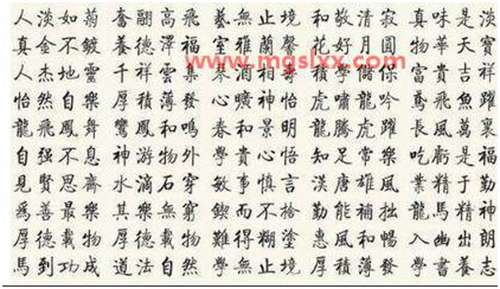 人淡如菊 奮翮高飛 藝無止境 和敬清寂 真味是淡
真金不鍍 養德澤福 室雅蘭馨 花好月圓 物華天寶
www.mgslxx.com
人杰地靈 千祥雲集 酒相 學儲 富貴吉祥
怡然自樂 厚積薄發 心曠神怡 虎嘯龍吟 鳶飛魚躍
龍飛鳳舞 鸞鳳和鳴 春和景明 龍騰虎躍 長風萬裏
自强不息 神游物外 學貴心悟 知足常樂 吃虧是福
見賢思齋 水滴石穿 敏事慎言 漢唐雄風 業精于勤
爲善最樂 其樂無窮 鍥而不捨 勤能補拙 龍馬精神
厚德載物 厚德載物 難得糊塗 惠風和暢 入幽出朗
馬到功成 道法自然 學無止境 厚積薄發 學書養志